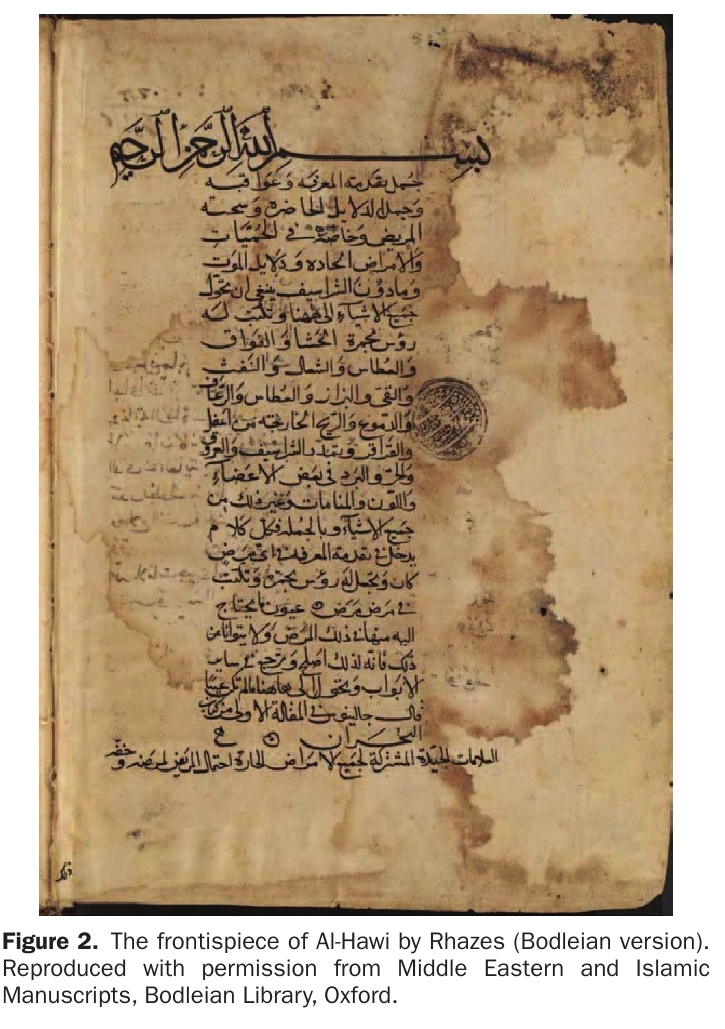 بسم الله الرحمن الرحيم
جمل تقدمة المعرفة وعواقبه
وجمل الدلايل الحاضرة وسحنه
المريض وخاصة في الحميات
والامراض الحاده ودلايل الموت
ومادون الشراسيف ينبغي ان تحول
جميع الاشياء الى ههنا وتكتب له
رؤس بحمرة الجشا والفواق
والعطاس والسعال والنفث
والقى والبزاز والعطاس والرعاف
والدموع والريح الخارجه من اسفل
والقراقر وتمدد الشراسيف والعروق
والحر والبرد في بعض الاعضاء
واللون والمنامات وغير ذلك من
جميع الاشياء وبالجملة فكل كلام
يدخل في تقدمة المعرفة اى مرض
كان وتجعل له رؤس بحمرة وتكتب
في مرض مرض عيون ما يحتاج
اليه منها في ذلك المرض ولا يتوانا من
ذلك فانه لذلك اصلح
الابواب
قال جالينوس في المقالة الاولى من كتاب
البحران
العلامات الجيدة المشتركة لجميع الامراض الحارة احتمال المريض لمرضه
Figure 2. The frontispiece of Al-Hawi by Rhazes (Bodleian version).
Reproduced with permission from Middle Eastern and Islamic
Manuscripts, Bodleian Library, Oxford.